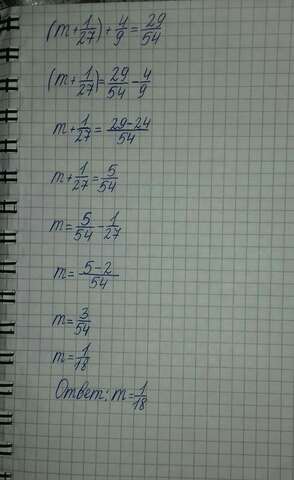 (m + 1/27) + 4/9 = 29/54
(m + 1/27) = 29/54 - 4/9
m + 1/27 = (29-24)/54
m + 1/27 = 5/54
m = 5/54 - 1/27
m = (5-2)/54
m = 3/54
m = 1/18
Ответ: m = 1/18